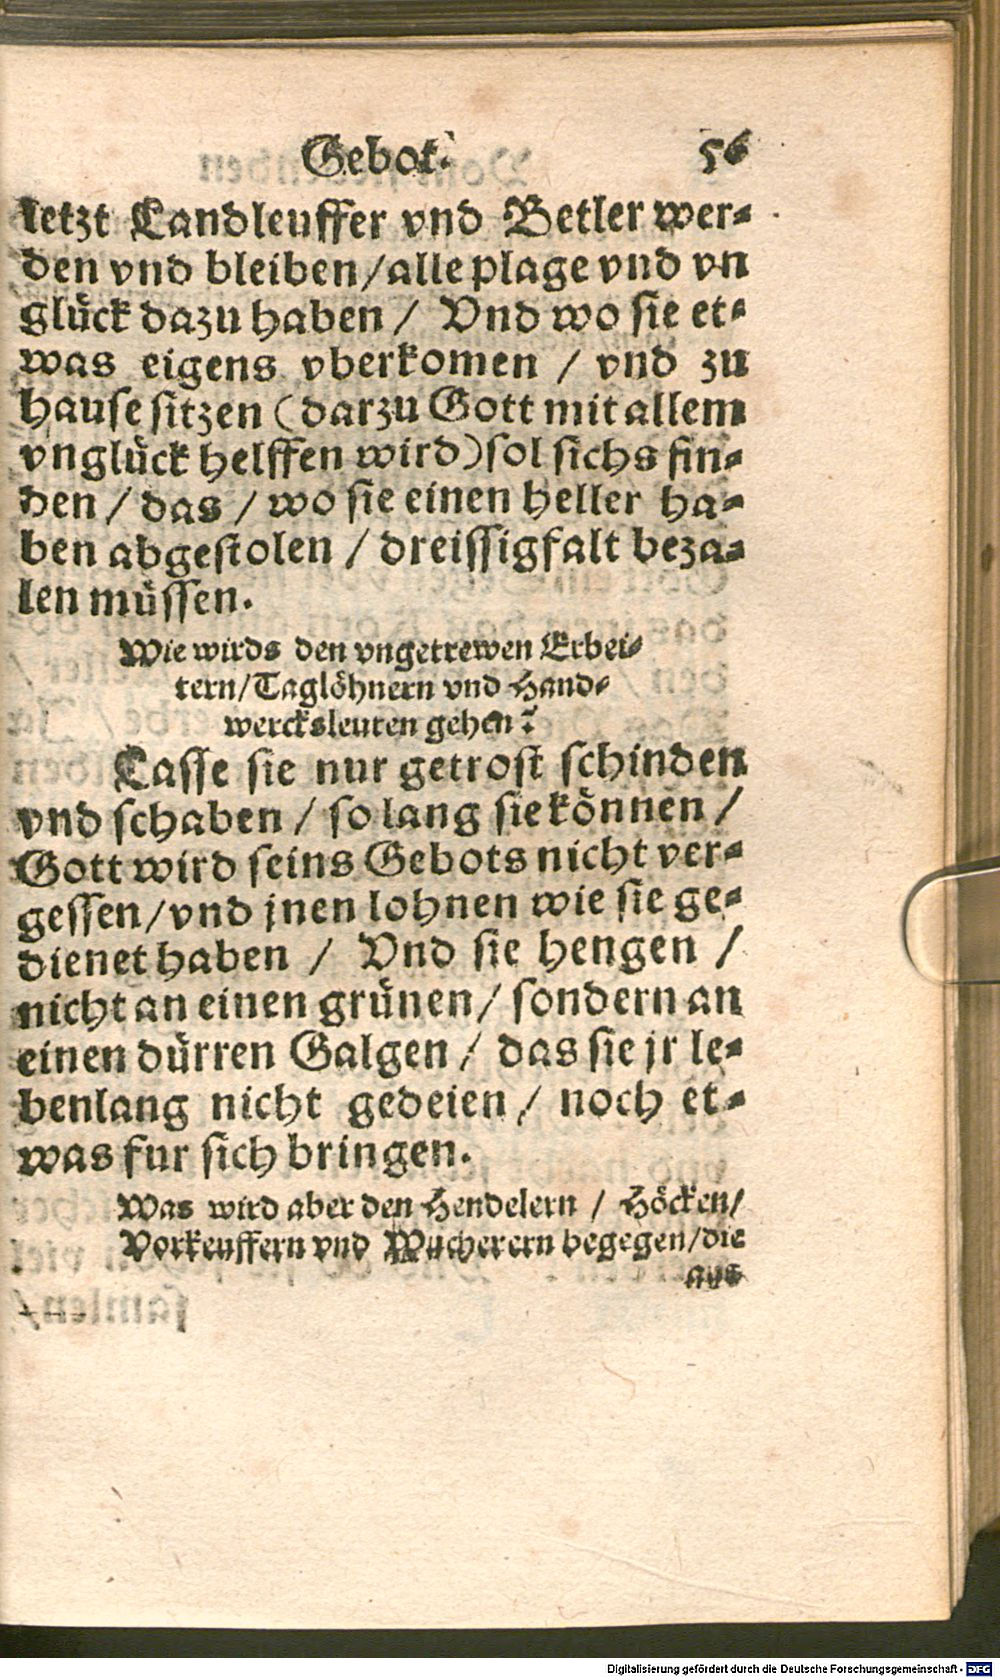 Gebot. 56
letzt Landleuffer vnd Betler wer-
den vnd bleiben/alle plage vnd vn
glück dazu haben / Vnd wo sie et-
was eigens vberkomen / vnd zu
hause sitzen (darzu Gott mit allem
vnglück helffen wird)sol sichs fin-
den / das / wo sie einen heller ha-
ben abgestolen / dreissigfalt beza-
len müssen.
Wie wirds den vngetrewen Erbei-
tern/Taglöhnern vnd Hand-
wercksleuten gehen?
Lasse sie nur getrost schinden
vnd schaben / so lang sie können /
Gott wird seins Gebots nicht ver-
gessen/vnd jnen lohnen wie sie ge-
dienet haben / Vnd sie hengen /
nicht an einen grünen/ sondern an
einen dürren Galgen / das sie jr le-
benlang nicht gedeien / noch et-
was fur sich bringen.
Was wird aber den Hendelern / Höcken/
Vorkeuffern vnd Wucherern begegen/die
aus
Digitalisierung gefördert durch die Deutsche Forschungsgemeinschaft - DFG